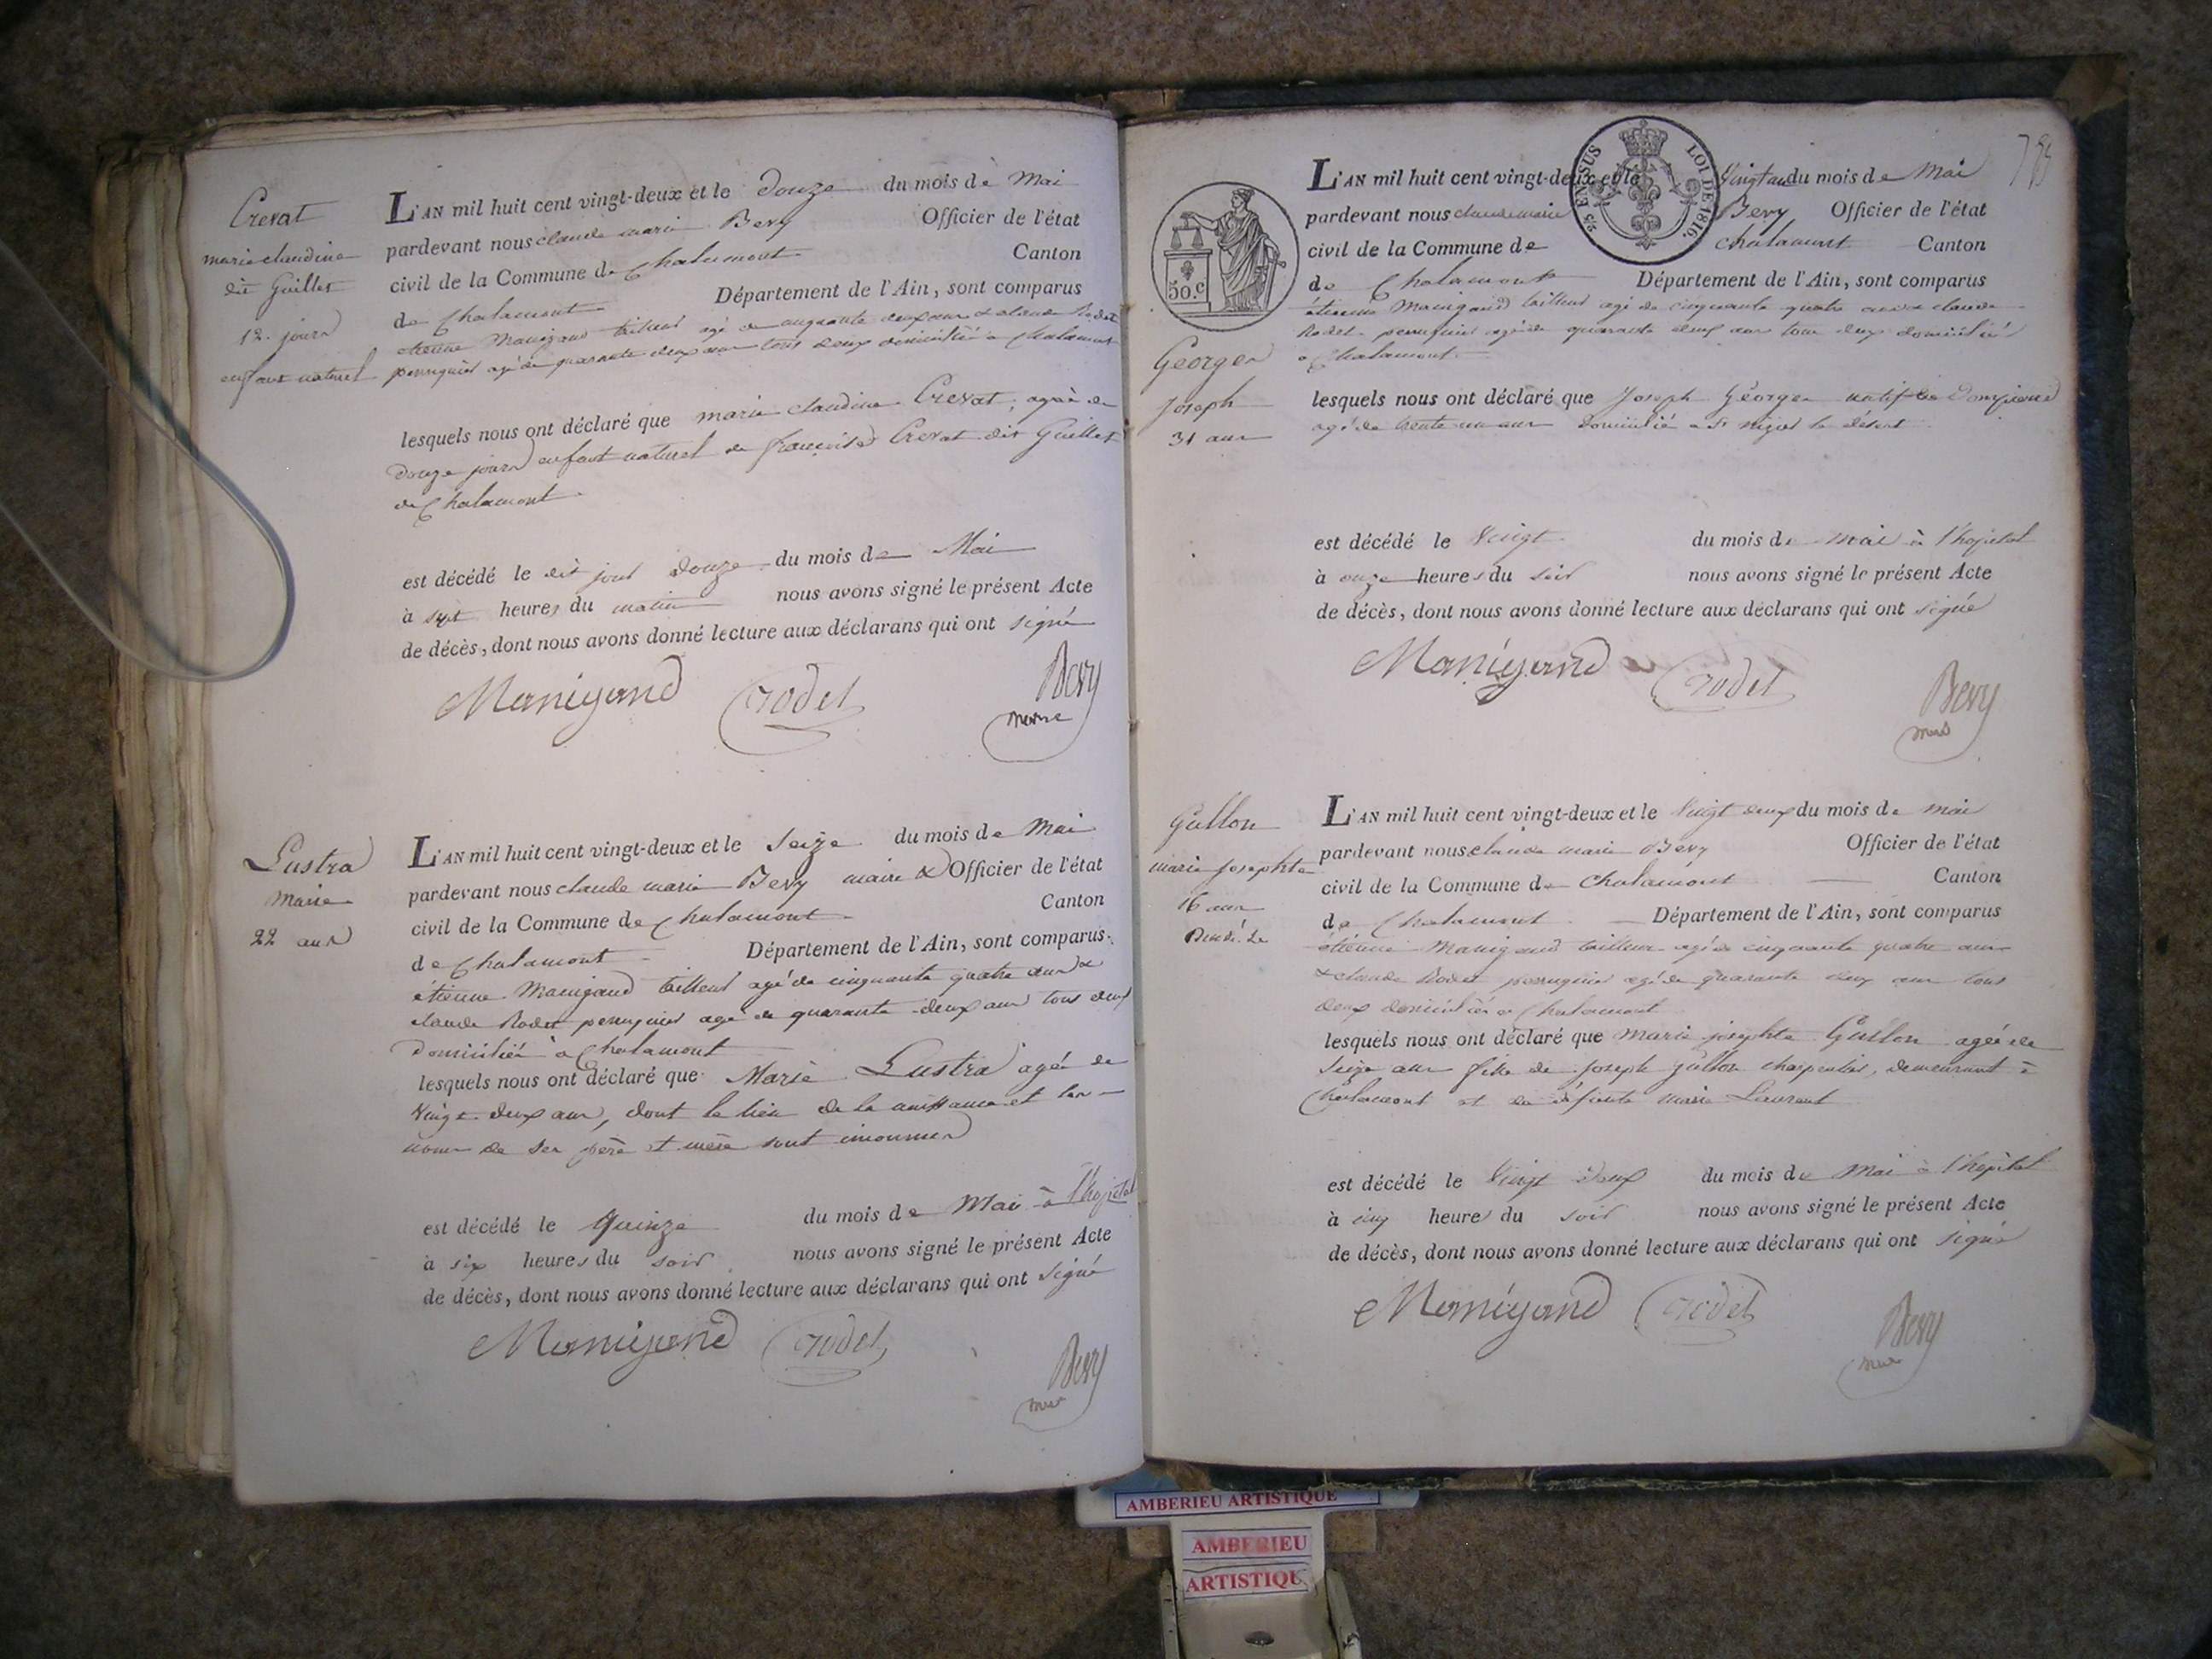 Crevat
marie claudine
dit Guillet
12. jours
enfant naturel
L'AN mil huit cent vingt-deux et le douze du mois de Mai
pardevant nous claude marie Bevy Officier de l'état
civil de la Commune de Chalamont Canton
de Chalamont Département de l'Ain, sont comparus
etienne Manigand tailleur agé de cinquante deux ans & claude Rodet
perruquier agé de quarante deux ans tous deux domiciliés a Chalamont
lesquels nous ont déclaré que marie claudine Crevat, agée de
douze jours enfant naturel de françoise Crevat dit Guillet
de Chalamont
est décédé le dit jour douze du mois de Mai
à sept heures du matin nous avons signé le présent Acte
de décès, dont nous avons donné lecture aux déclarans qui ont signé
Manigand Rodet Bevy
Lustra
Marie
22 ans
L'AN mil huit cent vingt-deux et le Seize du mois de Mai
pardevant nous claude marie Bevy maire & Officier de l'état
civil de la Commune de Chalamont Canton
de Chalamont Département de l'Ain, sont comparus
étienne Manigand tailleur agé de cinquante quatre ans &
claude Rodet perruquier agé de quarante deux ans tous deux
domiciliés à Chalamont
lesquels nous ont déclaré que Marie Lustra agée de
Vingt deux ans, dont le lieu de la naissance et les
noms de ses père et mère sont inconnus
est décédé le Quinze du mois de Mai à l'hopital
à six heures du soir nous avons signé le présent Acte
de décès, dont nous avons donné lecture aux déclarans qui ont signé
Manigand Rodet Bevy
25 EN SUS LOI DE 1816.
50.c
Georges
Joseph
31 ans
L'AN mil huit cent vingt-deux et le Vingt un du mois de Mai
pardevant nous claude marie Bevy Officier de l'état
civil de la Commune de Chalamont Canton
de Chalamont Département de l'Ain, sont comparus
étienne Manigand tailleur agé de cinquante quatre ans & claude
Rodet perruquier agé de quarante deux ans tous deux domiciliés
a Chalamont
lesquels nous ont déclaré que Joseph Georges natif de Dompierre
agé de trente un ans domicilié a St nizier le désert
est décédé le Vingt du mois de mai à l'hopital
à onze heures du soir nous avons signé le présent Acte
de décès, dont nous avons donné lecture aux déclarans qui ont signé
Manigand Rodet Bevy
Gullon
marie Josephte
16 ans
L'AN mil huit cent vingt-deux et le Vingt deux du mois de mai
pardevant nous claude marie Bevy Officier de l'état
civil de la Commune de Chalamont Canton
de Chalamont Département de l'Ain, sont comparus
étienne Manigand tailleur agé de cinquante quatre ans
& claude Rodet perruquier agé de quarante deux ans tous
deux domiciliés a Chalamont
lesquels nous ont déclaré que Marie josephte Gullon agée de
Seize ans fille de Joseph Gullon charpentier, demeurant à
Chalamont et de défunte marie Laurent
est décédé le Vingt deux du mois de Mai à l'hopital
à cinq heures du soir nous avons signé le présent Acte
de décès, dont nous avons donné lecture aux déclarans qui ont signé
Manigand Rodet Bevy
AMBERIEU ARTISTIQUE
AMBERIEU
ARTISTIQU